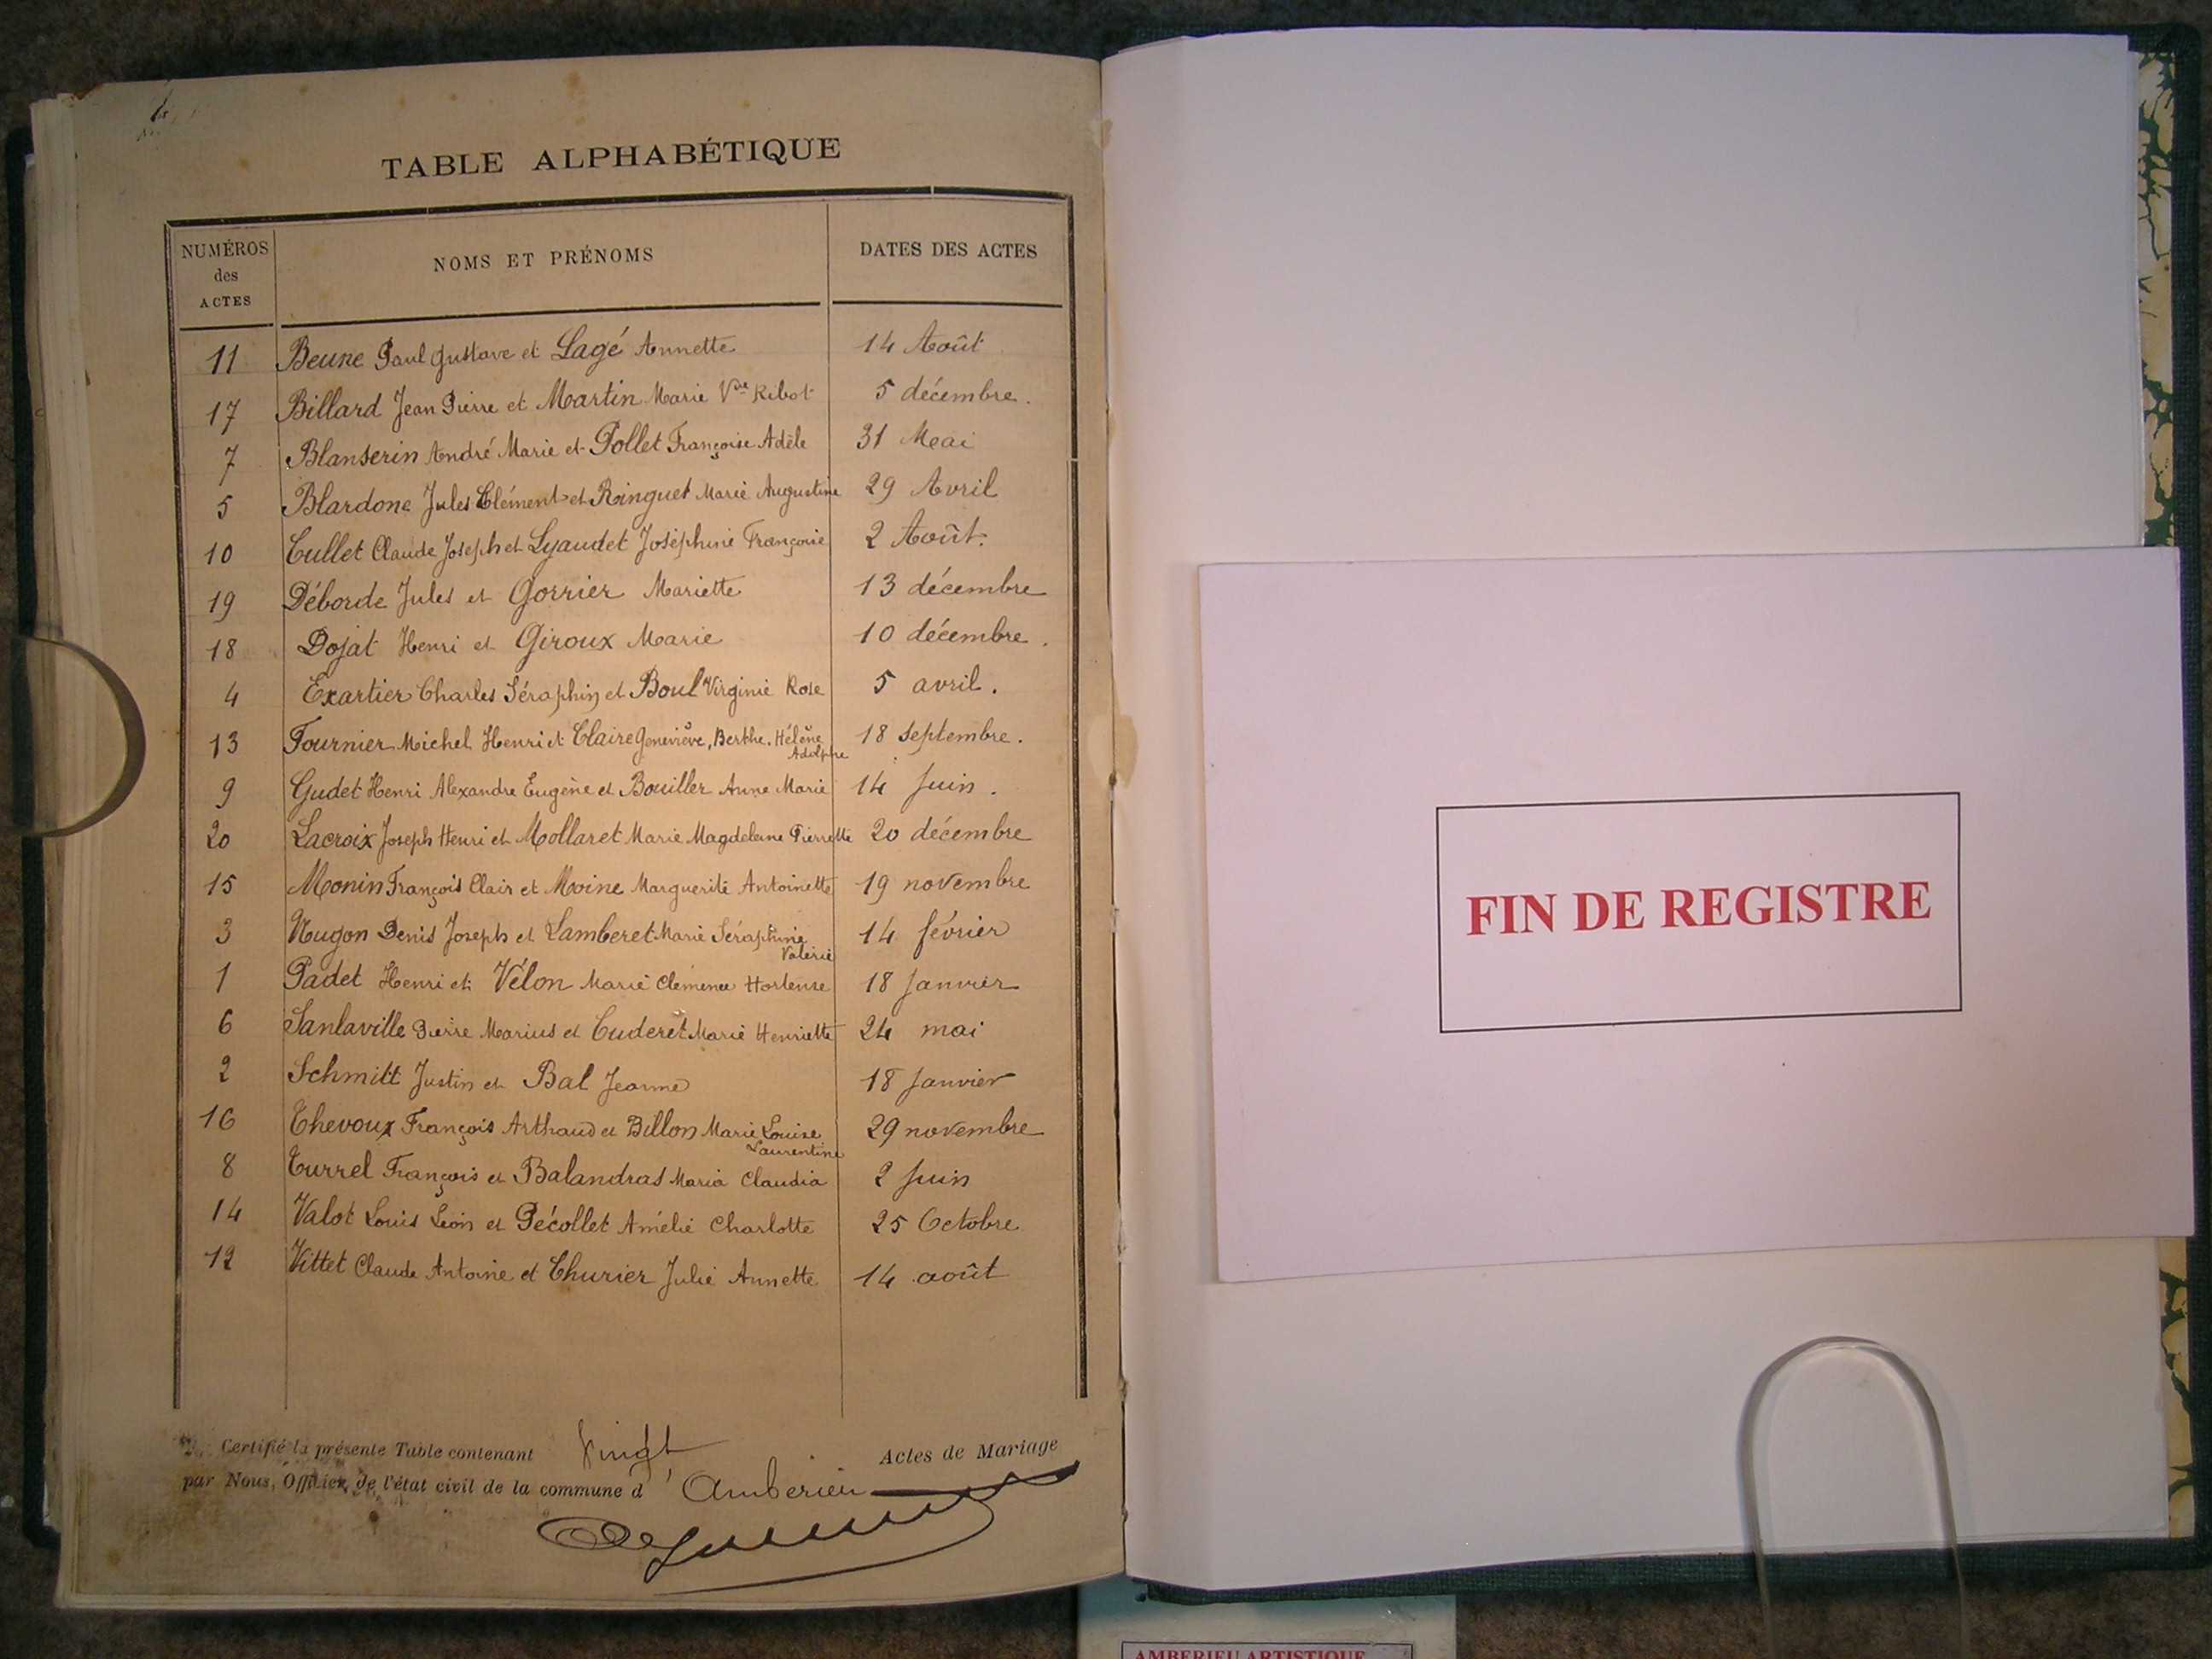 TABLE ALPHABÉTIQUE
NUMÉROS des ACTES NOMS ET PRÉNOMS DATES DES ACTES
11 Beune Paul Gustave et Lagé Annette 14 Août
17 Billard Jean Pierre et Martin Marie Vve Ribot 5 décembre.
7 Blanserin André Marie et Pollet Françoise Adèle 31 Mai
5 Blardone Jules Clément et Roinguet Marie Augustine 29 Avril
10 Cullet Claude Joseph et Lyaudet Joséphine Françoise 2 Août.
19 Déborde Jules et Gorrier Mariette 13 décembre
18 Dojat Henri et Giroux Marie 10 décembre.
4 Exartier Charles Séraphin et Boul Virginie Rose 5 avril.
13 Fournier Michel Henri et Claire Geneviève, Berthe. Hélène 18 septembre.
Adolphe
9 Gudet Henri Alexandre Eugène et Bouiller Anne Marie 14 Juin.
20 Lacroix Joseph Henri et Mollaret Marie Magdeleine Pierrette 20 décembre
15 Monin François Clair et Moine Marguerite Antoinette 19 novembre
3 Nugon Denis Joseph et Lamberet Marie Séraphine 14 février
Valérie
1 Padet Henri et Vélon Marie Clémence Hortense 18 Janvier
6 Sanlaville Pierre Marius et Cuderet Marie Henriette 24 mai
2 Schmitt Justin et Bal Jeanne 18 Janvier
16 Thevoux François Arthaud et Billon Marie Louise 29 novembre
Laurentine
8 Turrel François et Balandras Maria Claudia 2 Juin
14 Valot Louis Léon et Pécollet Amélie Charlotte 25 Octobre
12 Vittet Claude Antoine et Thurier Julie Annette 14 août
Certifié la présente Table contenant Vingt Actes de Mariage
par Nous, Officier de l'état civil de la commune d'Amberieu
FIN DE REGISTRE
AMBERIEU ARTISTIQUE